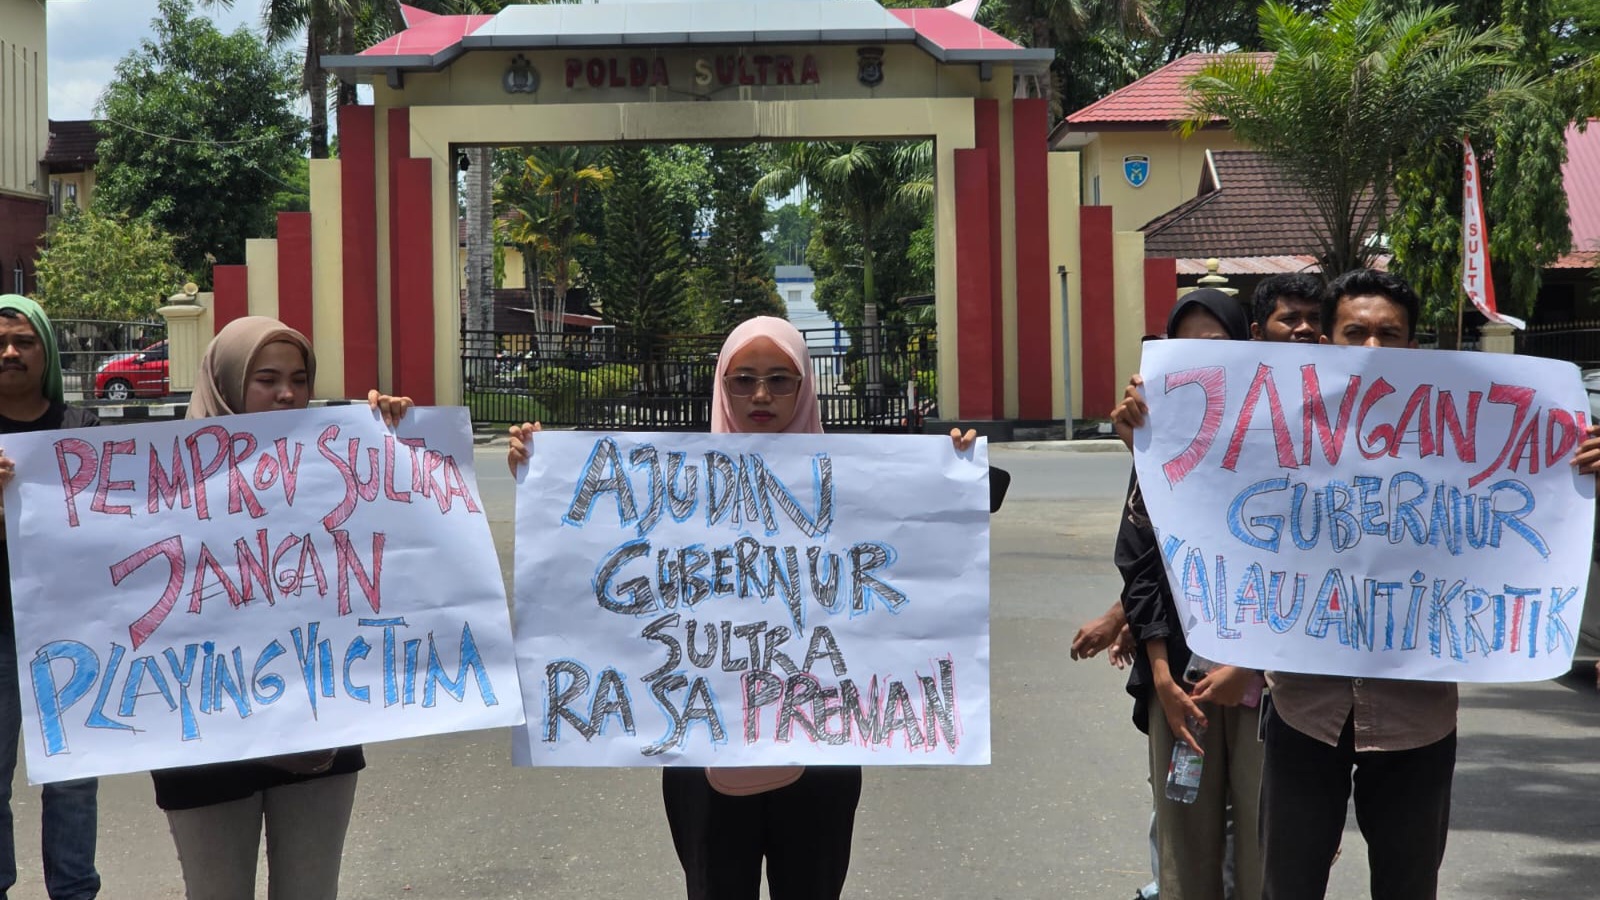 POLDA SULTRA
PEMPROV SULTRA
JANGAN
PLAYING VICTIM
AJUDAN
GUBERNUR
SULTRA
RASA PREMAN
JANGAN JADI
GUBERNUR
KALAU ANTI KRITIK